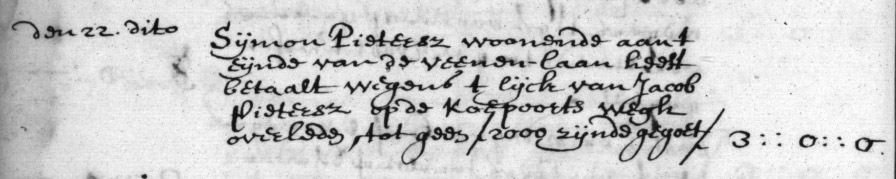 den 22. dito Sijmon Pietersz woonende aant
eijnde van de veenen laan heeft
betaalt wegens t lijck van Jacob
Pietersz op de Koepoorts wegh
overleden, tot geen / 2000 zijnde gegoet / 3 :: 0 :: 0.